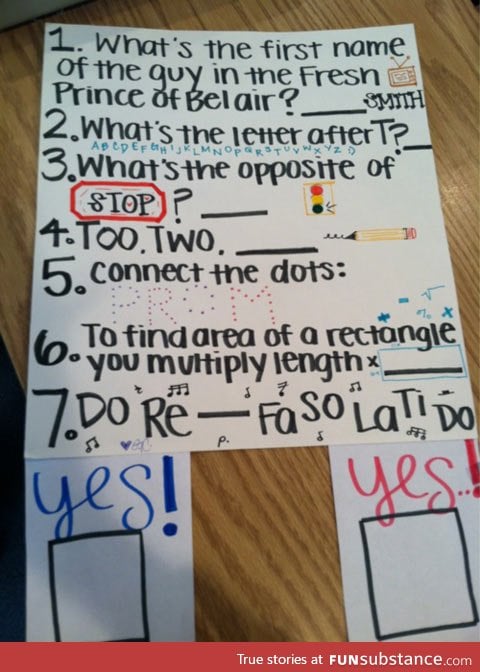 1. What's the first name
of the guy in the Fresh
Prince of Bel air? ____ SMITH
2. What's the letter after T? __
ABCDEFGHIJKLMNOPQRSTUVWXYZ :)
3. What's the opposite of
STOP ? ____
4. TOO, TWO, ____
5. Connect the dots:
PROM
6. To find area of a rectangle
you multiply length x ____
7. DO RE — FA SO LA TI DO
yes! yes...!
True stories at FUNsubstance.com